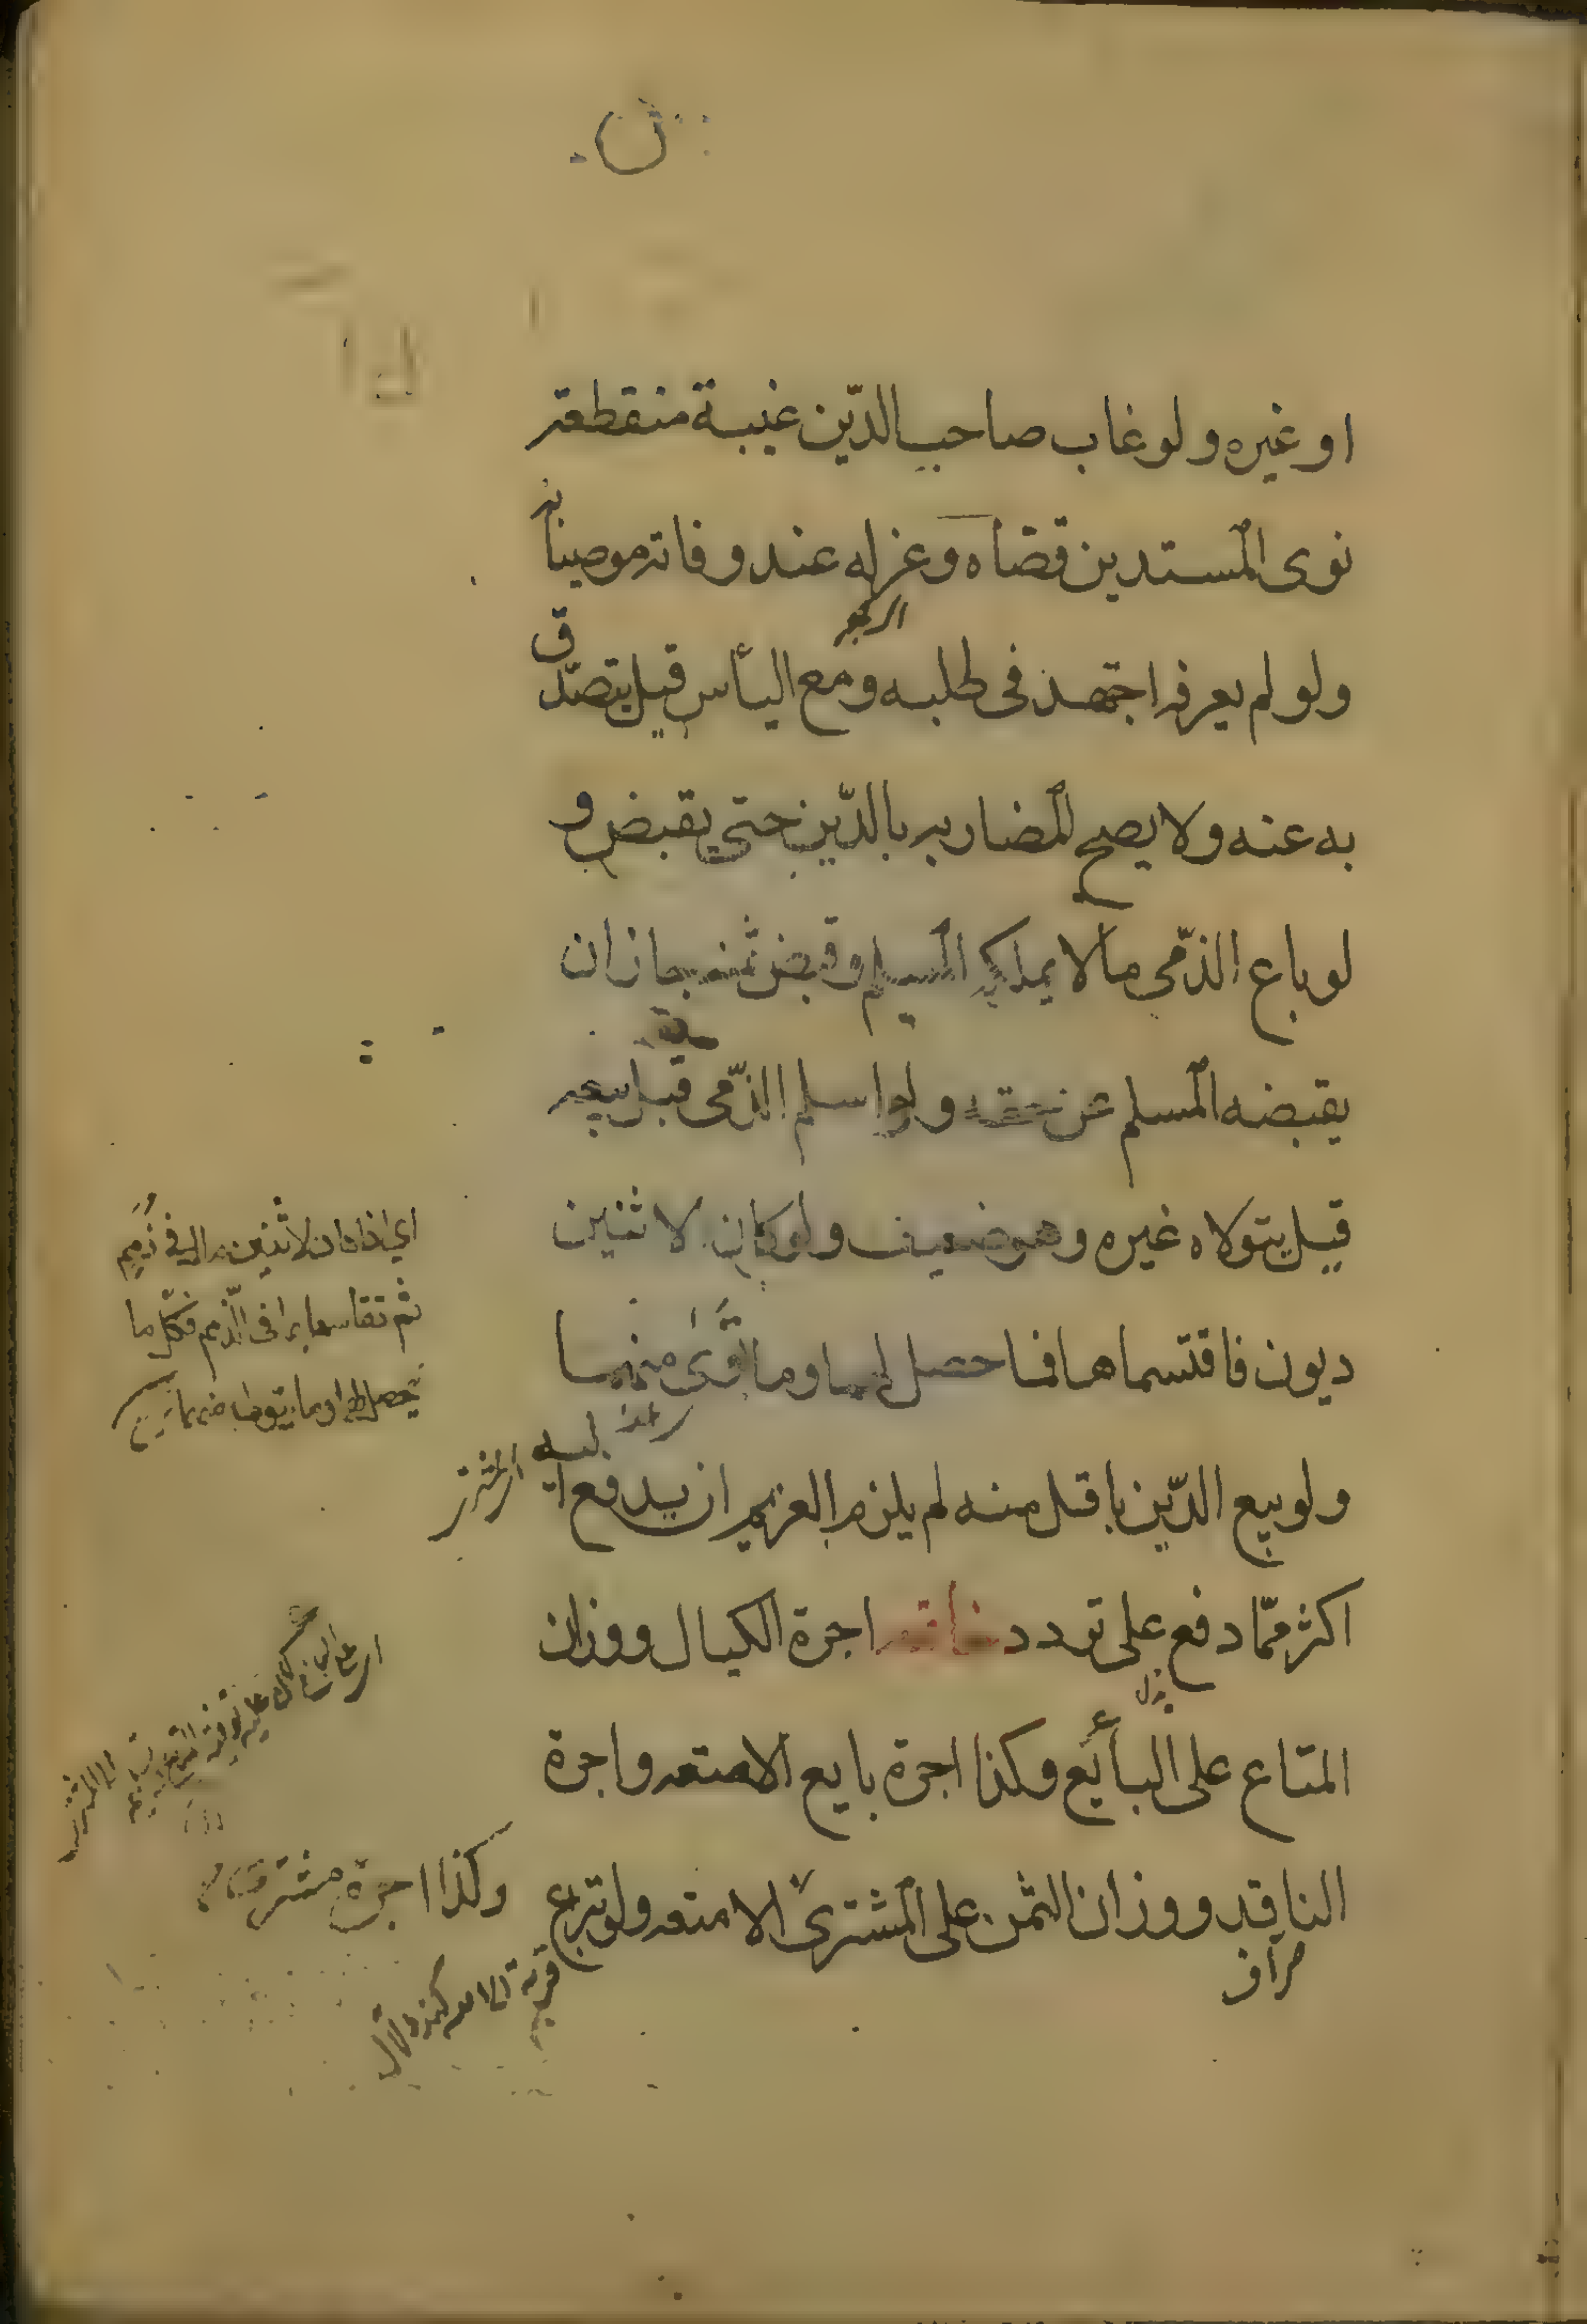 او غيره ولو غاب صاحب الدّين غيبة منقطعة
نوى المستدين قضاه وعزله عند وفاته موصيا به
ولو لم يعرفه اجتهد فى طلبه ومع اليأس قيل يتصدّق
به عنه ولا يصح المضاربه بالدّين حتى يقبض و
لو باع الذمّى مالا يملكه المسلم وقبض ثمنه جاز ان
يقبضه المسلم عن حقه ولو اسلم الذمّى قبل بيعه
قيل يتولاه غيره وهو ضعيف ولو كان لاثنين
ديون فاقتسماها فما حصل لهما وما توى منهما
ولو بيع الدّين باقل منه لم يلزم الغريم ان يدفع اليه
اكثر ممّا دفع على تردد خاتمه اجرة الكيال ووزان
المتاع على البائع وكذا اجرة بايع الامتعه واجرة
الناقد ووزان الثمن على المشترى الامتعه ولو تبرع
وكذا اجرة مشترى
اى اذا كان لاثنين مال فى ذمم
ثم تقاسما بما فى الذمم فكل ما
يحصل لهما وما يتوى